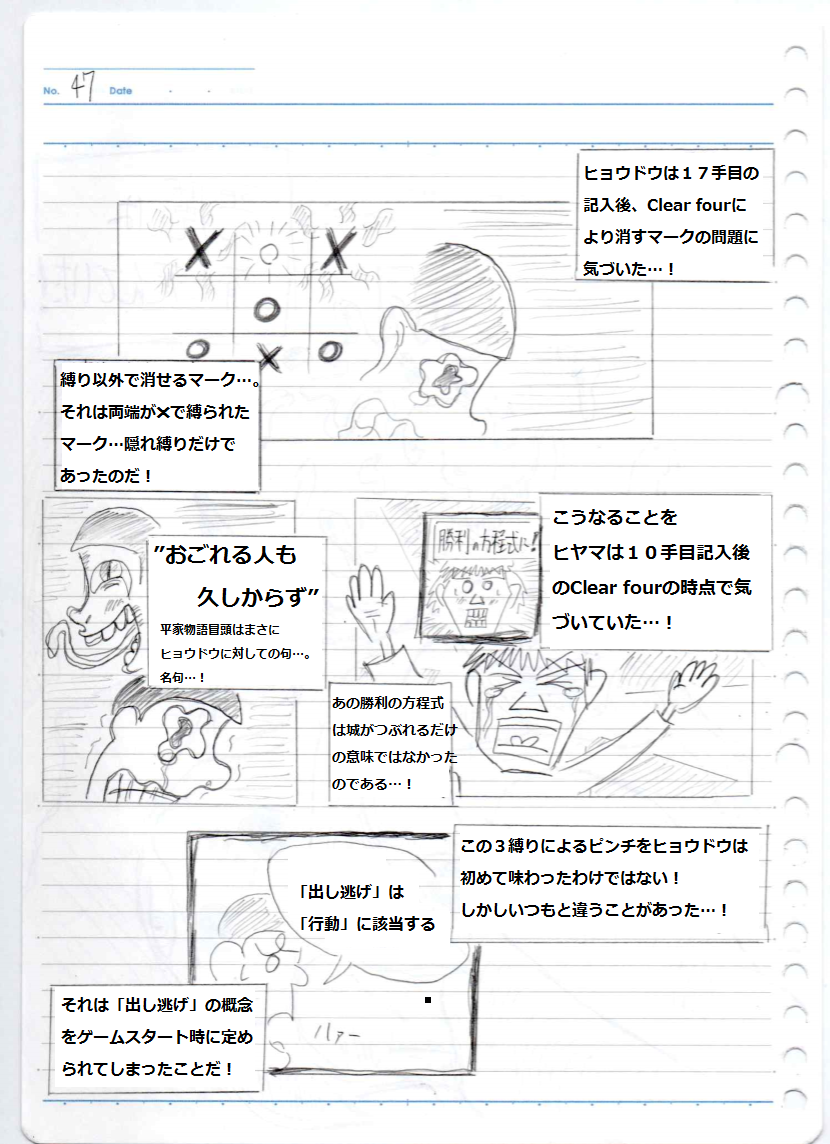 No. 47 Date
ヒョウドウは１７手目の
記入後、Clear fourに
より消すマークの問題に
気づいた…！
縛り以外で消せるマーク…。
それは両端が×で縛られた
マーク…隠れ縛りだけで
あったのだ！
”おごれる人も
久しからず”
平家物語冒頭はまさに
ヒョウドウに対しての句…。
名句…！
勝利の方程式に！
こうなることを
ヒヤマは１０手目記入後
のClear fourの時点で気
づいていた…！
あの勝利の方程式
は城がつぶれるだけ
の意味ではなかった
のである…！
この３縛りによるピンチをヒョウドウは
初めて味わったわけではない！
しかしいつもと違うことがあった…！
「出し逃げ」は
「行動」に該当する
ハァー
それは「出し逃げ」の概念
をゲームスタート時に定め
られてしまったことだ！